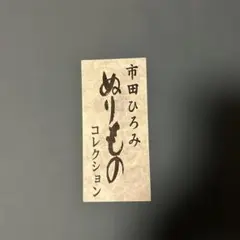 市田ひろみ
ぬりもの
コレクション